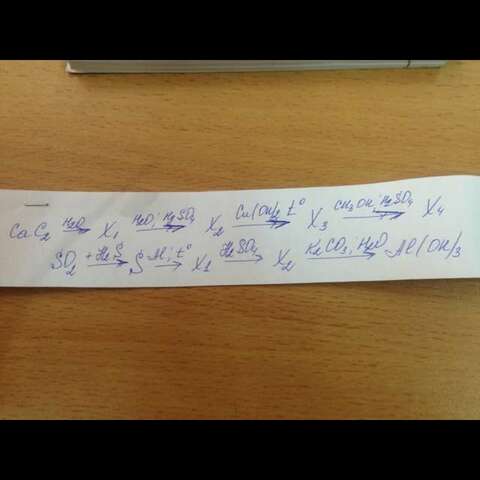 CaC₂ —H₂O→ X₁ —H₂O; HgSO₄→ X₂ —Cu(OH)₂ t°→ X₃ —CH₃OH; H₂SO₄→ X₄
SO₂ —+H₂S→ S —Al; t°→ X₁ —H₂SO₄→ X₂ —K₂CO₃; H₂O→ Al(OH)₃